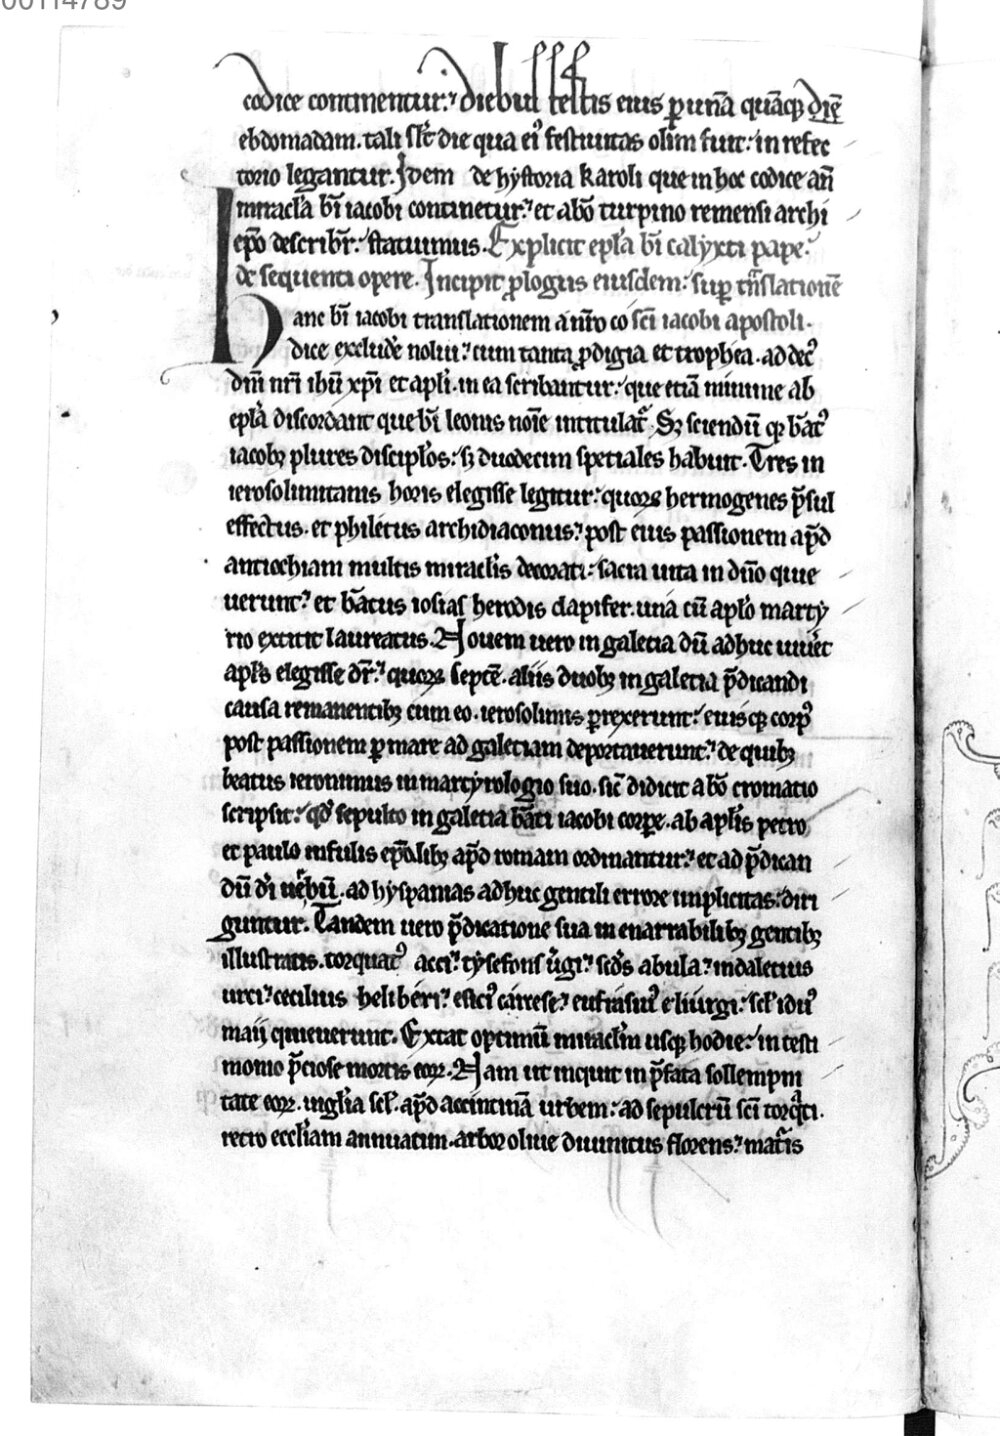 00114789
codice continentur: diebus festis eius p̱ unā quāq̧ diē
ebdomadam. tali sƚt die qua ei᷒ festiuitas olim fuit: in refec
torio legantur. Idem de hystoria karoli que in hoc codice añ
miracƚa bī iacobi continetur: et abō turpino remensi archi
ep̄o describr̄: statuimus. Explicit epƚa bī calyxti pape.
de sequenti opere. Incipit ꝓlogus eiusdem: sup̱ tr̄nslationē
Hanc bī iacobi translationem a nr̄o co scī iacobi apostoli.
dice excludē nolui: cum tanta ꝓdigia et trophea. ad dec᷒
dnī nr̄i ihū xp̄i et apƚi. in ea scribantur: que etiā minime ab
epƚa discordant que bī leonis noīe intitulat᷑. Sꝫ sciendū qꝫ b̄at᷒
iacobꝫ plures discipƚos: sꝫ duodecim speciales habuit. Tres in
ierosolimitanis horis elegisse legitur: quoꝝ hermogenes p̄sul
effectus. et philetus archidiaconus: post eius passionem ap̄d
antiochiam multis miracƚis decorati: sacra uita in dn̄o quie
uerunt: et b̄atus iosias herodis dapifer. una cū apƚo marty
rio extitit laureatus. Nouem uero in galecia dū adhuc uiuēt
apƚs elegisse dr̄: quoꝝ septē. aliis duobꝫ in galecia p̄dicandi
causa remanentibꝫ cum eo. ierosolimis p̱rexerunt: eiusq̧ corp᷒
post passionem p̱ mare ad galeciam deportauerunt: de quibꝫ
beatus ieronimus in martyrologio suo. sic̄ didicit a bō cromatio
scripsit: qd̄ sepulto in galecia b̄ati iacobi corpe. ab apƚis petro
et paulo infulis ep̄alibꝫ ap̄d romam ordinantur: et ad p̄dican
dū dī uerbū. ad hyspanias adhuc gentili errore implicitas: diri
guntur. Tandem uero p̄dicatione sua in enarrabilibꝫ gentibꝫ
illustratis. torquat᷒ acci: tysefons u̅gi: scd̄s abula: indalecius
urci: cecilius heliberi: esici᷒ carcese: eufrasiu᷒ eliurgi: scƚ idu᷒
maij quieuerunt. Extat optimū miracƚm usq̧ hodie: in testi
monio p̄ciose mortis eoꝝ. Nam ut inquit in p̄fata sollempni
tate eoꝝ. uigƚia scƚ. ap̄d accintinā urbem: ad sepulcrū scī torq̄ti.
retro eccƚiam annuatim. arbor oliue diuinitus florens: mat᷑is